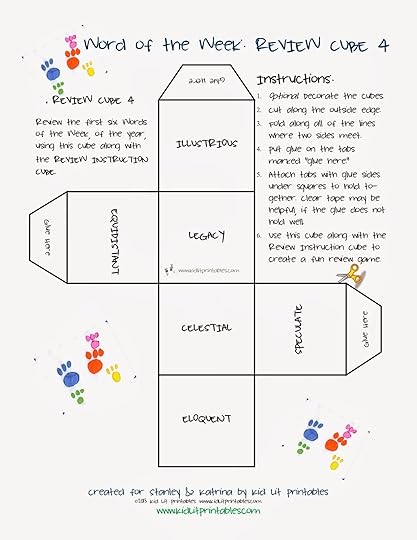 Word of the Week: REVIEW CUBE 4
REVIEW CUBE 4
Review the first six Words
of the Week, of the year,
using this cube along with
the REVIEW INSTRUCTION
CUBE.
Glue Here
ILLUSTRIOUS
Glue Here
EQUIDISTANT
LEGACY
www.kidlitprintables.com
CELESTIAL
SPECULATE
Glue Here
ELOQUENT
Instructions:
1. Optional: Decorate the cubes.
2. Cut along the outside edge.
3. Fold along all of the lines
where two sides meet.
4. Put glue on the tabs
marked "glue here"
5. Attach tabs with glue sides
under squares to hold to-
gether. Clear tape may be
helpful, if the glue does not
hold well.
6. Use this cube along with the
Review Instruction cube to
create a fun review game.
created for Stanley & Katrina by Kid Lit Printables
©2013 Kid Lit Printables www.kidlitprintables.com
www.kidlitprintables.com